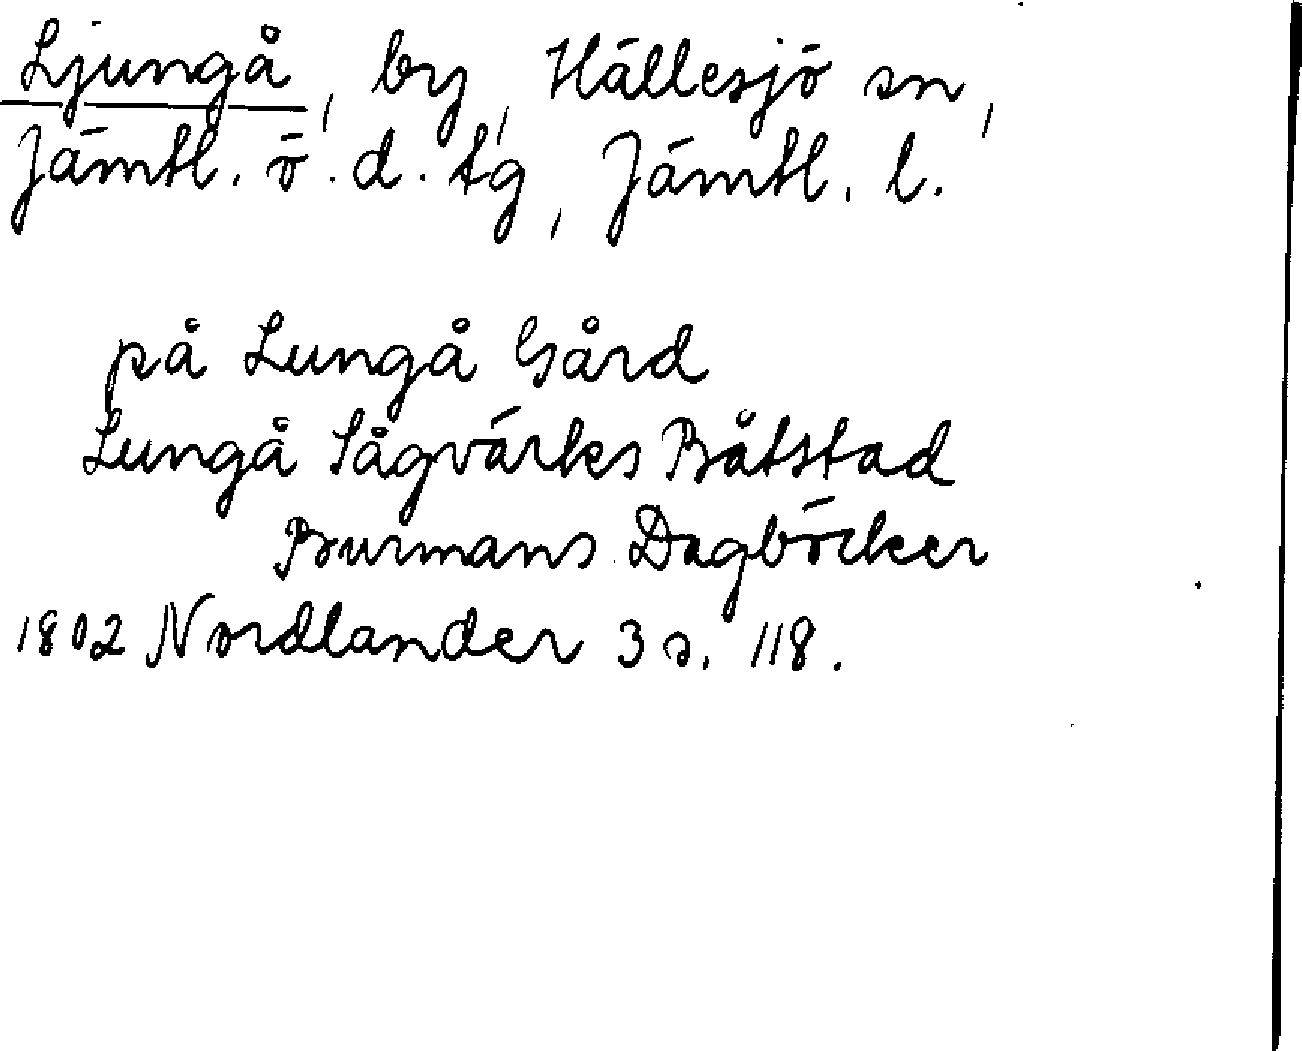 Ljungå, by, Hällesjö sn,
Jämtl. ö. d. tg, Jämtl. l.
på Lungå Gård
Lungå Sågvärks Båtstad
Burmans Dagböcker
1802 Nordlander 3 s. 118.